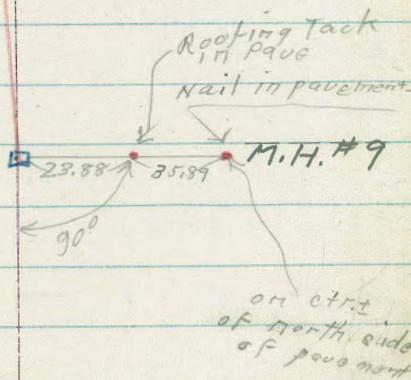 Roofing Tack
in Pave
Nail in pavement
23.88 35.89 M.H. #9
90°
on ctr.±
of north side
of pavement